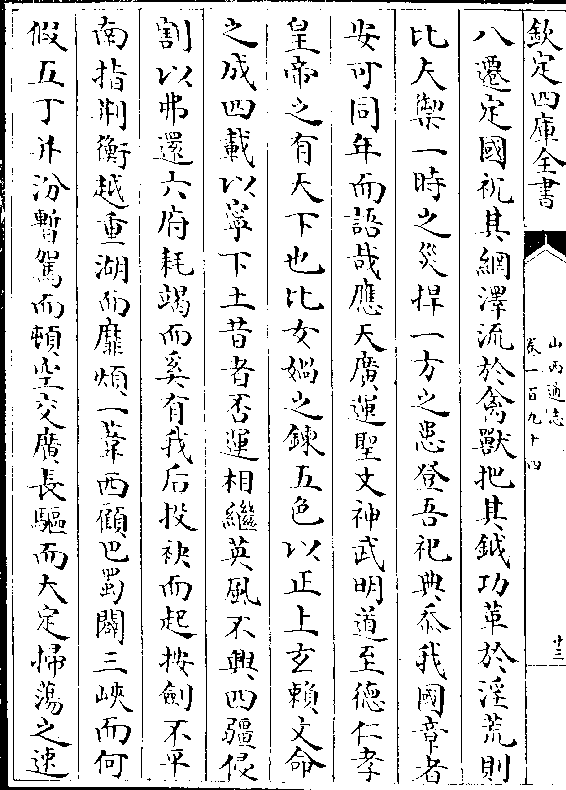 欽定四庫全書
山西通志
卷一百九十四
十三
八遷定國祝其網澤流於禽獸把其鉞功革於淫荒則
比夫禦一時之災捍一方之患登吾祀典忝我國章者
安可同年而語哉應天廣運聖文神武明道至德仁孝
皇帝之有天下也比女媧之鍊五色以正上玄賴文命
之成四載以寧下土昔者否運相繼英風不興四疆侵
割以弗還六府耗竭而奚有我后投袂而起按劍不平
南指荆衡越重湖而靡煩一葦西顧巴蜀闢三峽而何
假五丁并汾暫駕而頓空交廣長驅而大定掃蕩之速